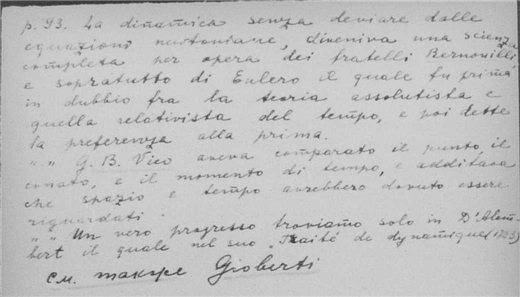 p. 93. La dinamica senza deviare dalle
equazioni newtoniane, diveniva una scienza
completa per opera dei fratelli Bernouilli
e sopratutto di Eulero il quale fu prima
in dubbio fra la teoria assolutista e
quella relativista del tempo, e poi dette
la preferenza alla prima.
" " G. B. Vico aveva comparato il punto, il
conato, e il momento di tempo, e additava
che spazio e tempo avrebbero dovuto essere
riguardati
" " Un vero progresso troviamo solo in D'Alem
bert il quale nel suo Traité de dynamique (1743)
см. также Gioberti